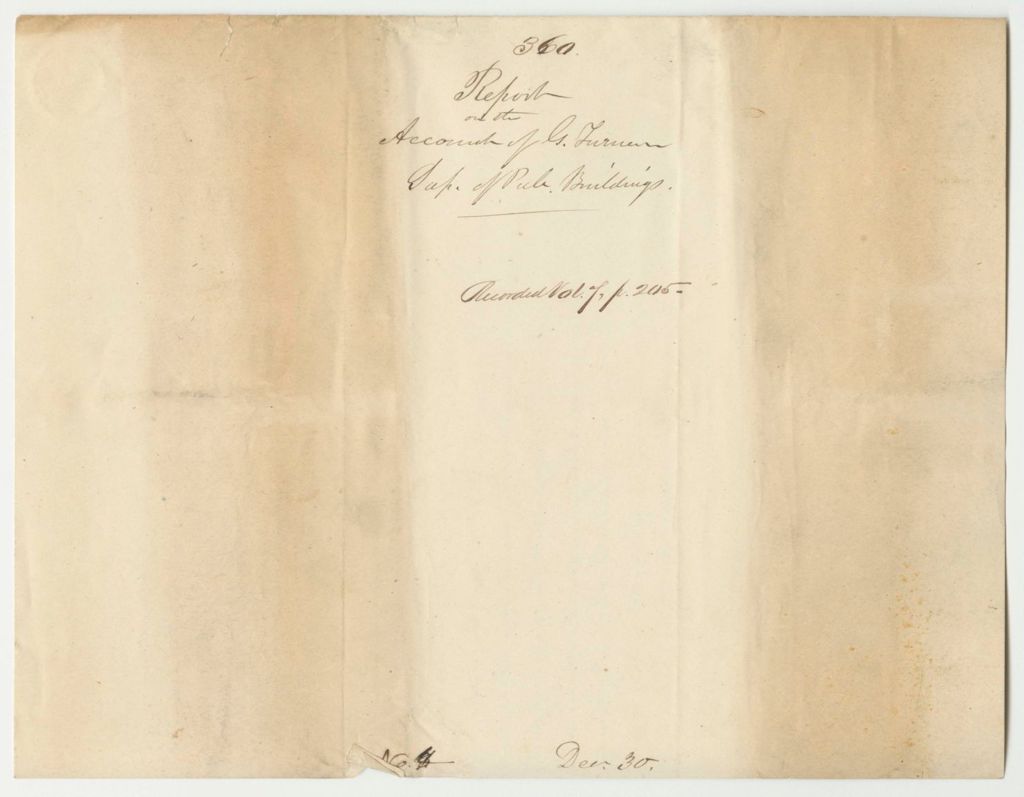 360.
Report
on the
Account of G. Turner
Sup. of Pub. Buildings.
Recorded Vol. 7, p. 205-
No. 4
Dec. 30.